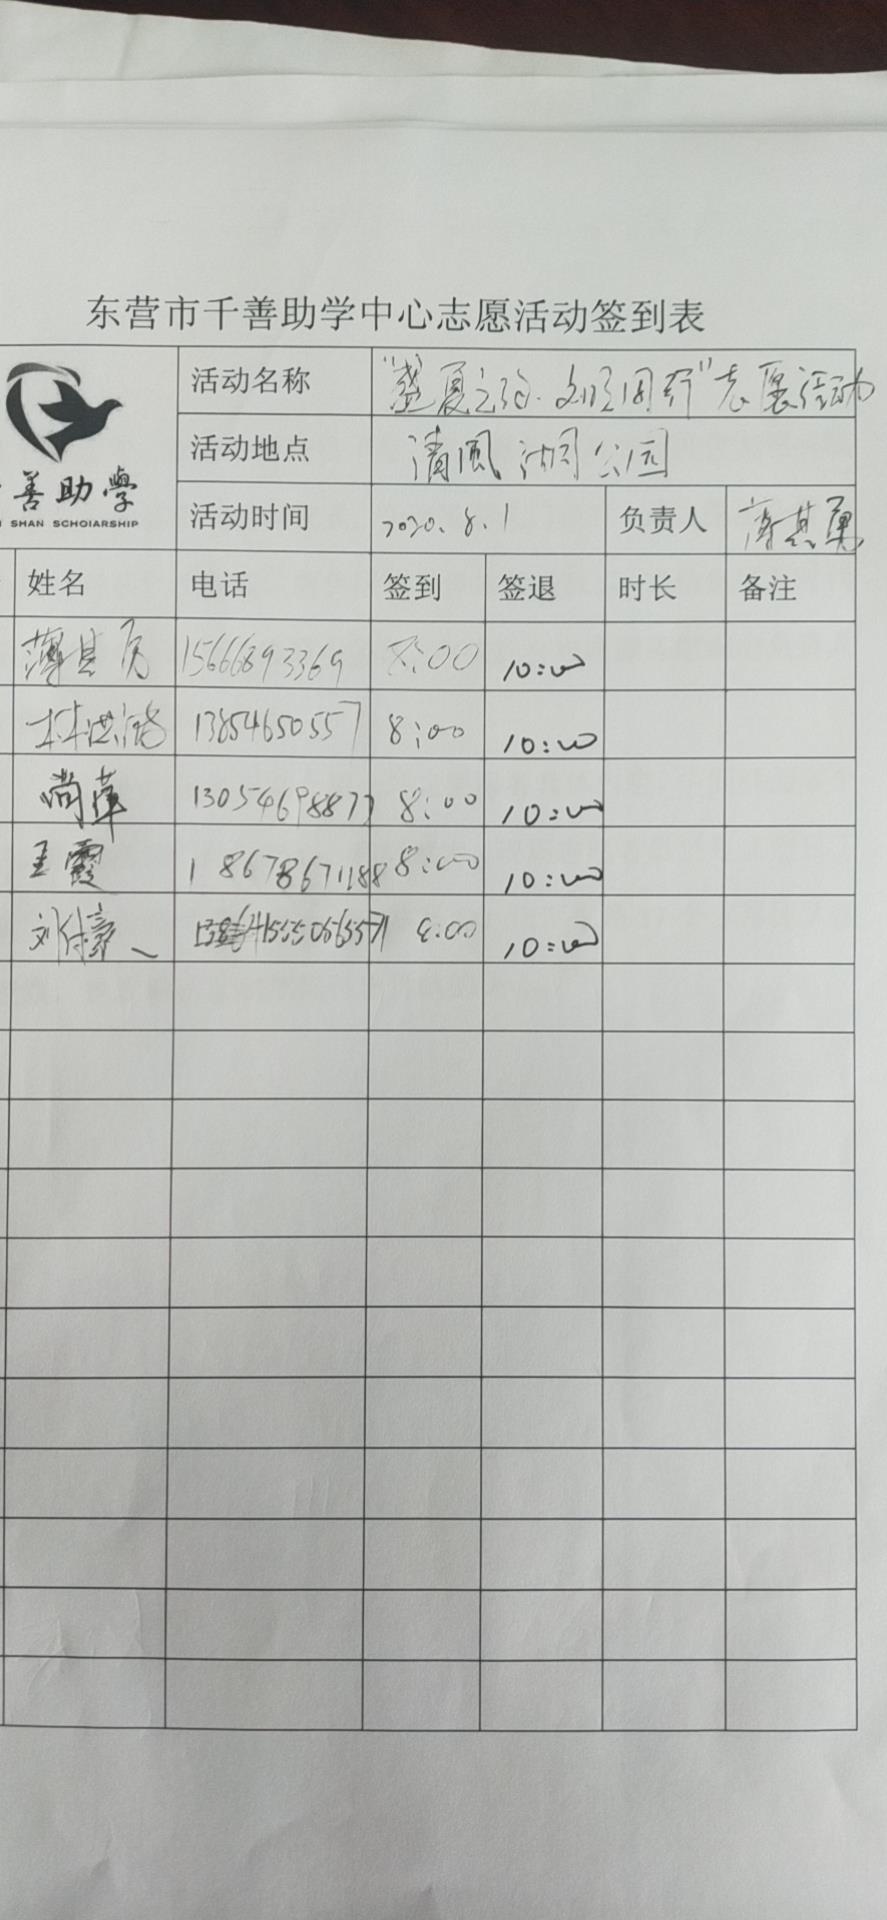 东营市千善助学中心志愿活动签到表
善助學
SHAN SCHOIARSHIP
活动名称 "盛夏之约·文明同行"志愿活动
活动地点 清風湖公园
活动时间 2020.8.1 负责人 薄其勇
姓名 电话 签到 签退 时长 备注
薄其勇 15666893369 8:00 10:00
林洪 13854650557 8:00 10:00
尚萍 13054698877 8:00 10:00
王霞 18678671188 8:00 10:00
刘 8:00 10:00